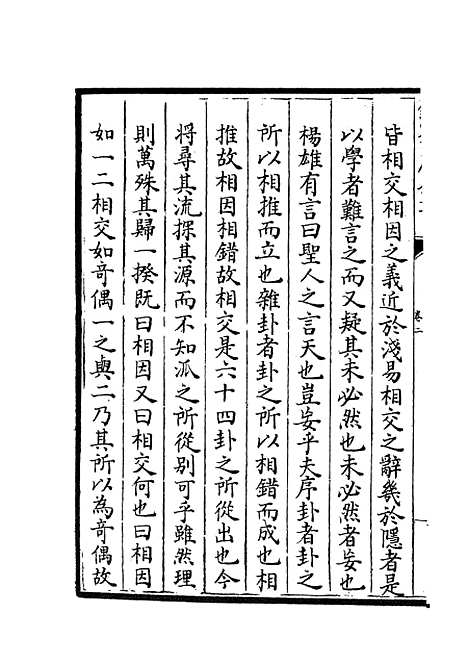 皆相交相因之義近於淺易相交之辭幾於隱者是
以學者難言之而又疑其未必然也未必然者妄也
楊雄有言曰聖人之言天也豈妄乎夫序卦者卦之
所以相推而立也雜卦者卦之所以相錯而成也相
推故相因相錯故相交是六十四卦之所從出也今
將尋其流探其源而不知派之所從别可乎雖然理
則萬殊其歸一揆既曰相因又曰相交何也曰相因
如一二相交如竒偶一之與二乃其所以為竒偶故